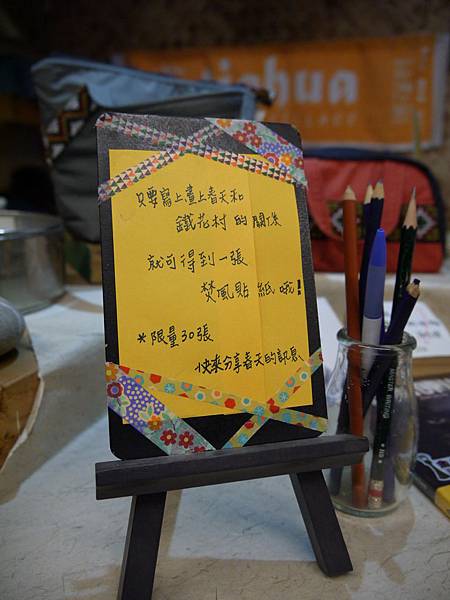 tiehua
只要寫上畫上春天和
鐵花村的關係
就可得到一張
焚風貼紙哦!
*限量30張
快來分享春天的訊息